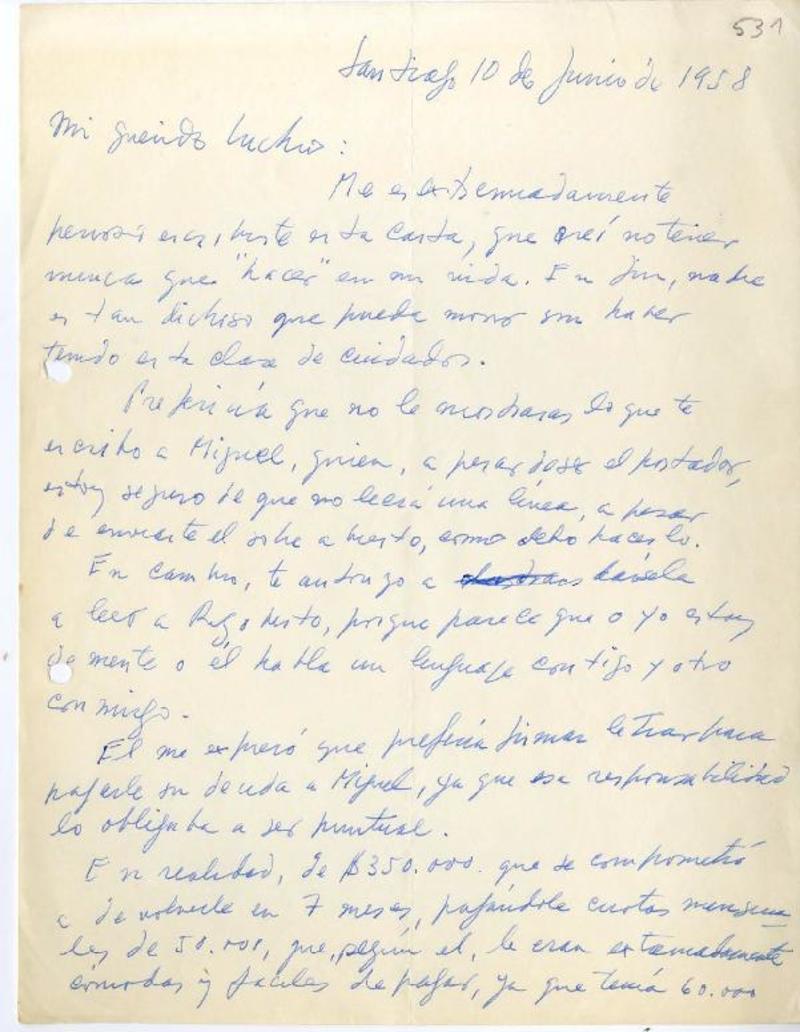 531
Santiago 10 de Junio de 1958
Mi querido Lucho:
Me es extremadamente
penoso escribirte esta carta, que creí no tener
nunca que "hacer" en mi vida. En fin, nadie
es tan dichoso que pueda morir sin haber
tenido esta clase de cuidados.
Preferiría que no le mostraras lo que te
escribo a Miguel, quien, a pesar de ser el portador,
estoy seguro de que no leerá una línea, a pesar
de enviarte el sobre abierto, como debo hacerlo.
En cambio, te autorizo a dársela
a leer a Rigoberto, porque parece que o yo estoy
demente o él habla un lenguaje contigo y otro
conmigo.
El me expresó que prefería firmar letras para
pagarle su deuda a Miguel, ya que esa responsabilidad
lo obligaba a ser puntual.
En realidad, de $350.000. que se comprometió
a devolverle en 7 meses, pagándole cuotas mensua
les de 50.000, que, según el, le eran extremadamente
cómodas y fáciles de pagar, ya que tenía 60.000